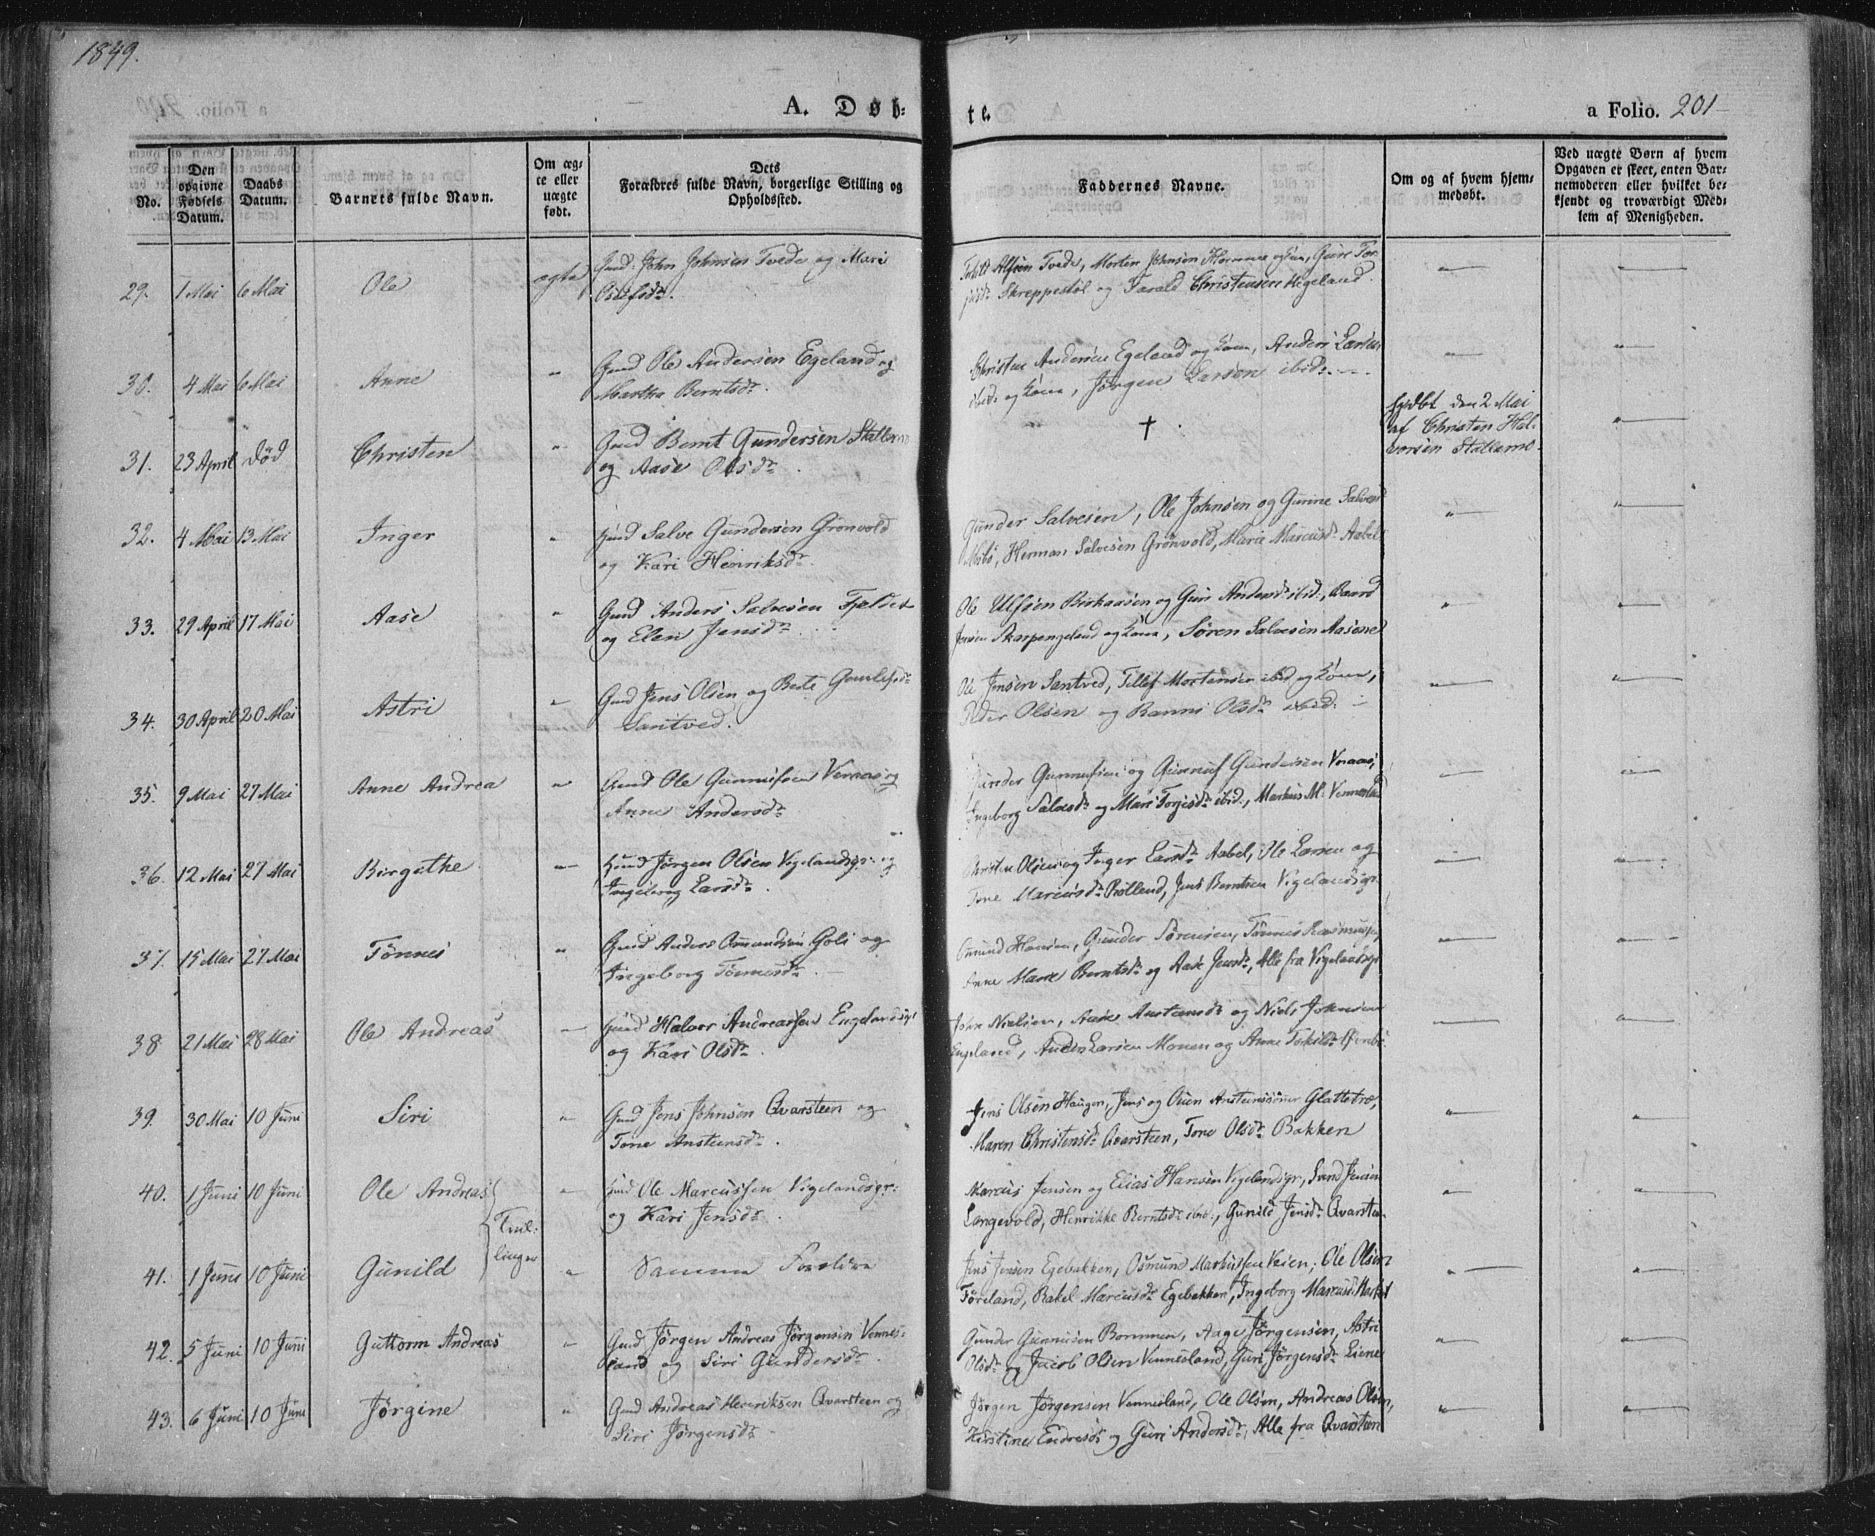 1849.
A. Døb-
te.
a Folio. 201
No.
Den opgivne Fødsels Datum.
Daabs Datum.
Barnets fulde Navn.
Om ægte eller uægte født.
Dets Forældres fulde Navn, borgerlige Stilling og Opholdssted.
Faddernes Navne.
Om og af hvem hjemmedøbt.
Ved uægte Børn af hvem Opgaven er skeet, enten Barnemoderen eller hvilket bekjendt og troværdigt Medlem af Menigheden.
29. 1 Mai 6 Mai Ole ægte Gmd: John Johnsen Tvede og Mari
Alfsen Tvede, Morten Johnsen og
Skreppestøl og Tarald Christensen Higeland.
30. 4 Mai 6 Mai Anne " Gmd Ole Andersen Egeland og
Martha Berntsdr.
Christen Andersen Egeland og Kone, Anders Larsen
ibid: og Kone, Jørgen Larsen ibid:
31. 23 April død Christen " Gmd Bernt Gundersen Stallemo
og Aase Olsdr.
†
hjdbt den 2 Mai
af Christen Hal-
vorsen Stallemo.
32. 4 Mai 13 Mai Inger " Gmd Salve Gundersen Grønvold
og Kari Henriksdr.
Gunder Salvesen, Ole Johnsen og Gunne
Mosbø, Herman Salvesen Grønvold, Marie Marcusdr Aabel
33. 29 April 17 Mai Aase " Gmd Anders Salvesen Fjeldet
og Elen Jensdr.
Ole Ulfsen og Guri Andersdr ibid:, Baard
Jensen Skarpengeland og Kone, Søren Salvesen Aasene
34. 30 April 20 Mai Astri " Gmd Jens Olsen og Berte
Santved.
Ole Jensen Santved, Tellef Mortensen ibid og Kone,
Peder Olsen og Olsdr ibid:
35. 9 Mai 27 Mai Anne Andrea " Gmd Ole Gunnufsen Veraas og
Anne Andersdr
Gunder Gunnufsen og Gunnuf Gundersen Veraas,
Ingeborg Salvesdr og Mari Torjesdr ibid:, Markus M. Vennesland
36. 12 Mai 27 Mai Birgithe " Gmd Jørgen Olsen Vigelandsgr: og
Ingeborg Larsdr.
Olsen og Inger Larsdr Aabel, Ole Larsen og
Tone Marcusdr Røllend, Jens Berntsen Vigelandsgr.
37. 15 Mai 27 Mai Tønnes " Gmd Anders Osmundsen Goli og
Ingeborg Tønnesdr.
Osmund Hansen, Gunder Sørensen, Tønnes Rasmussen,
Anne Marie Berntsdr og Aase Jensdr, Alle fra Vigelandsgr
38. 21 Mai 28 Mai Ole Andreas " Gmd Halvor Andreassen Engelandsgr
og Kari Olsdr.
John Nielsen, Aase Anstensdr og Niels Johnsen
Engeland, Anders Larsen Monen og Anne
39. 30 Mai 10 Juni Siri " Gmd Jens Johnsen Qvarsteen og
Tone Anstensdr.
Jens Olsen Haugen, Jens og Ouen Anstenssønner Glattetræ,
Maren Christensdr Qvarsteen, Tone Olsdr Bakken
40. 1 Juni 10 Juni Ole Andreas " Gmd Ole Marcussen Vigelandsgr:
og Kari Jensdr.
Marcus Jensen og Elias Hansen Vigelandsgr, Svend Jensen
Langevold, Henrikke Berntsdr ibid:, Gunild Jensdr Qvarsteen
Tvil-
linger
41. 1 Juni 10 Juni Gunild " Samme Forældre
Jens Jensen Egebakken, Osmund Markussen Veien, Ole Olsen
Føreland, Rakel Marcusdr Egebakken, Ingeborg Marcusdr
42. 5 Juni 10 Juni Guttorm Andreas " Gmd Jørgen Andreas Jørgensen Vennes-
land og Siri Gundersdr.
Gunder Gunnusen Bommen, Aage Jørgensen, Astri
Olsdr og Jacob Olsen Vennesland, Guri Jørgensdr Liene
43. 6 Juni 10 Juni Jørgine " Gmd Andreas Henriksen Qvarsteen og
Siri Jørgensdr
Jørgen Jørgensen Vennesland, Ole Olsen, Andreas Olsen,
Kirstine Endresdr og Guri Andersdr, Alle fra Qvarsteen